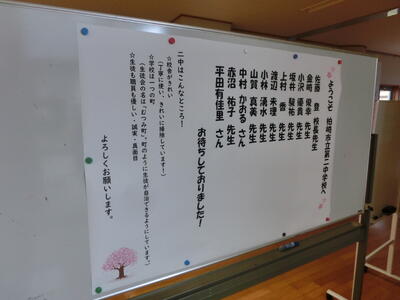 ようこそ 柏崎市立第二中学校へ
佐藤 登 校長先生
金崎 優幸 先生
小沢 優貴 先生
坂井 駿祐 先生
上村 香 先生
渡辺 朱理 先生
小林 清水 先生
山賀 真美 先生
中村 かおる さん
赤沼 祐子 先生
平田有佳里 さん
お待ちしておりました！
二中はこんなところ！
☆校舎がきれい
（丁寧に使い、きれいに掃除しています！）
☆学校は一つの町
（生徒会の名は「むつみ町」。町のように生徒が自治できるようにしています。）
☆生徒も職員も優しい・誠実・真面目
よろしくお願いします。